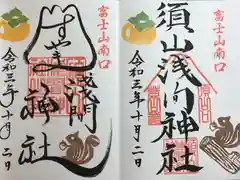 富士山南口
須山浅間神社
令和三年十月二日
富士山南口
すやま
浅間
神社
令和三年十月二日